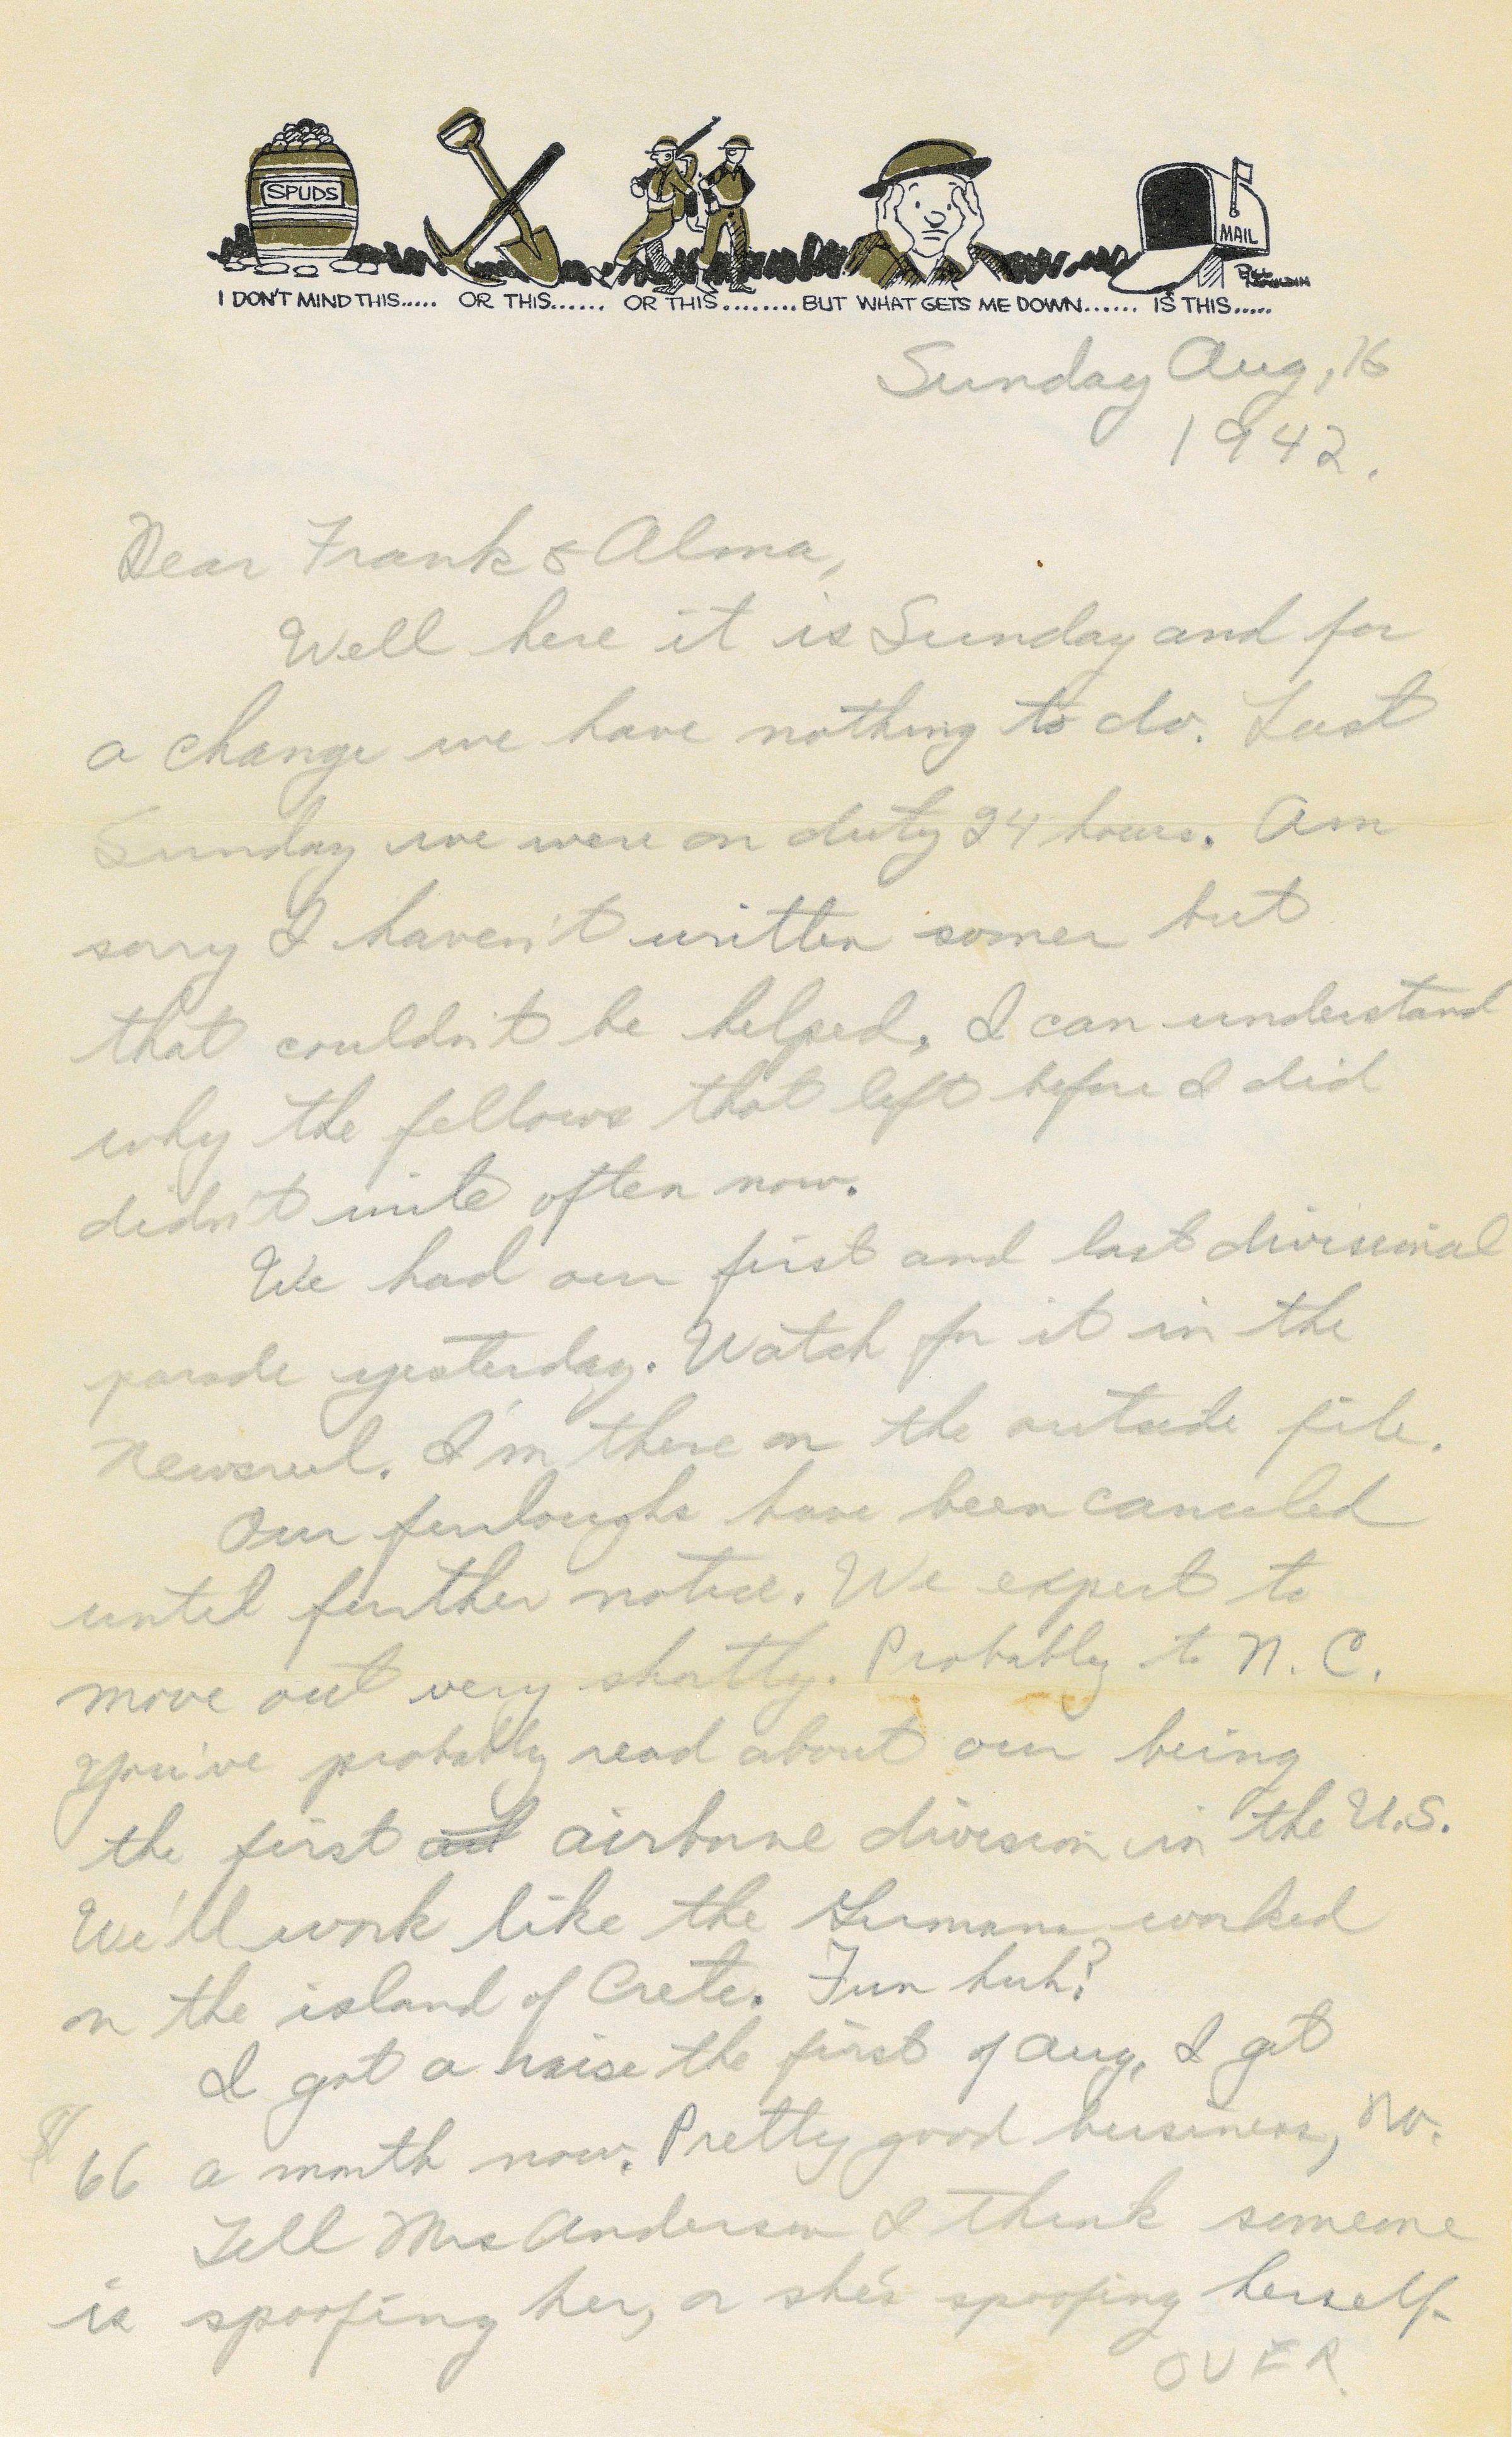 SPUDS
MAIL
BILL MAULDIN
I DON'T MIND THIS..... OR THIS...... OR THIS......... BUT WHAT GETS ME DOWN...... IS THIS.....
Sunday Aug, 16
1942.
Dear Frank & Alma,
Well here it is Sunday and for
a change we have nothing to do. Last
Sunday we were on duty 24 hours. Am
sorry I haven't written sooner but
that couldn't be helped, I can understand
why the fellows that left before I did
didn't write often now.
We had our first and last divisional
parade yesterday. Watch for it in the
Newsreel. I'm there on the outside file.
Our furloughs have been canceled
until further notice. We expect to
move out very shortly. Probably to N. C.
You've probably read about our being
the first airborne division in the U.S.
We'll work like the Germans worked
on the island of Crete. Fun huh?
I got a raise the first of Aug, I get
$66 a month now. Pretty good business, no.
Tell Mrs Anderson I think someone
is spoofing her, or she's spoofing herself.
OVER